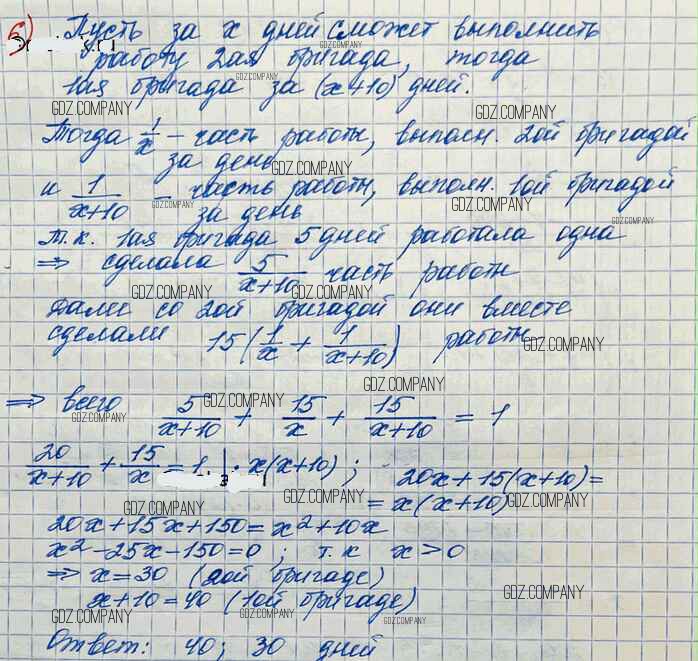 5) Пусть за x дней сможет выполнить
работу 2ая бригада, тогда
1ая бригада за (x+10) дней.
GDZ.COMPANY
Тогда 1/x – часть работы, выполн. 2ой бригадой
за день
и 1/(x+10) – часть работы, выполн. 1ой бригадой
за день
Т.к. 1ая бригада 5 дней работала одна
⇒ сделала 5/(x+10) часть работы
Далее со 2ой бригадой они вместе
сделали 15(1/x + 1/(x+10)) работы
⇒ всего 5/(x+10) + 15/x + 15/(x+10) = 1
20/(x+10) + 15/x = 1 | · x(x+10) ; 20x + 15(x+10) =
= x(x+10)
20x + 15x + 150 = x² + 10x
x² - 25x - 150 = 0 ; т.к x > 0
⇒ x = 30 (2ой бригаде)
x + 10 = 40 (1ой бригаде)
Ответ: 40; 30 дней